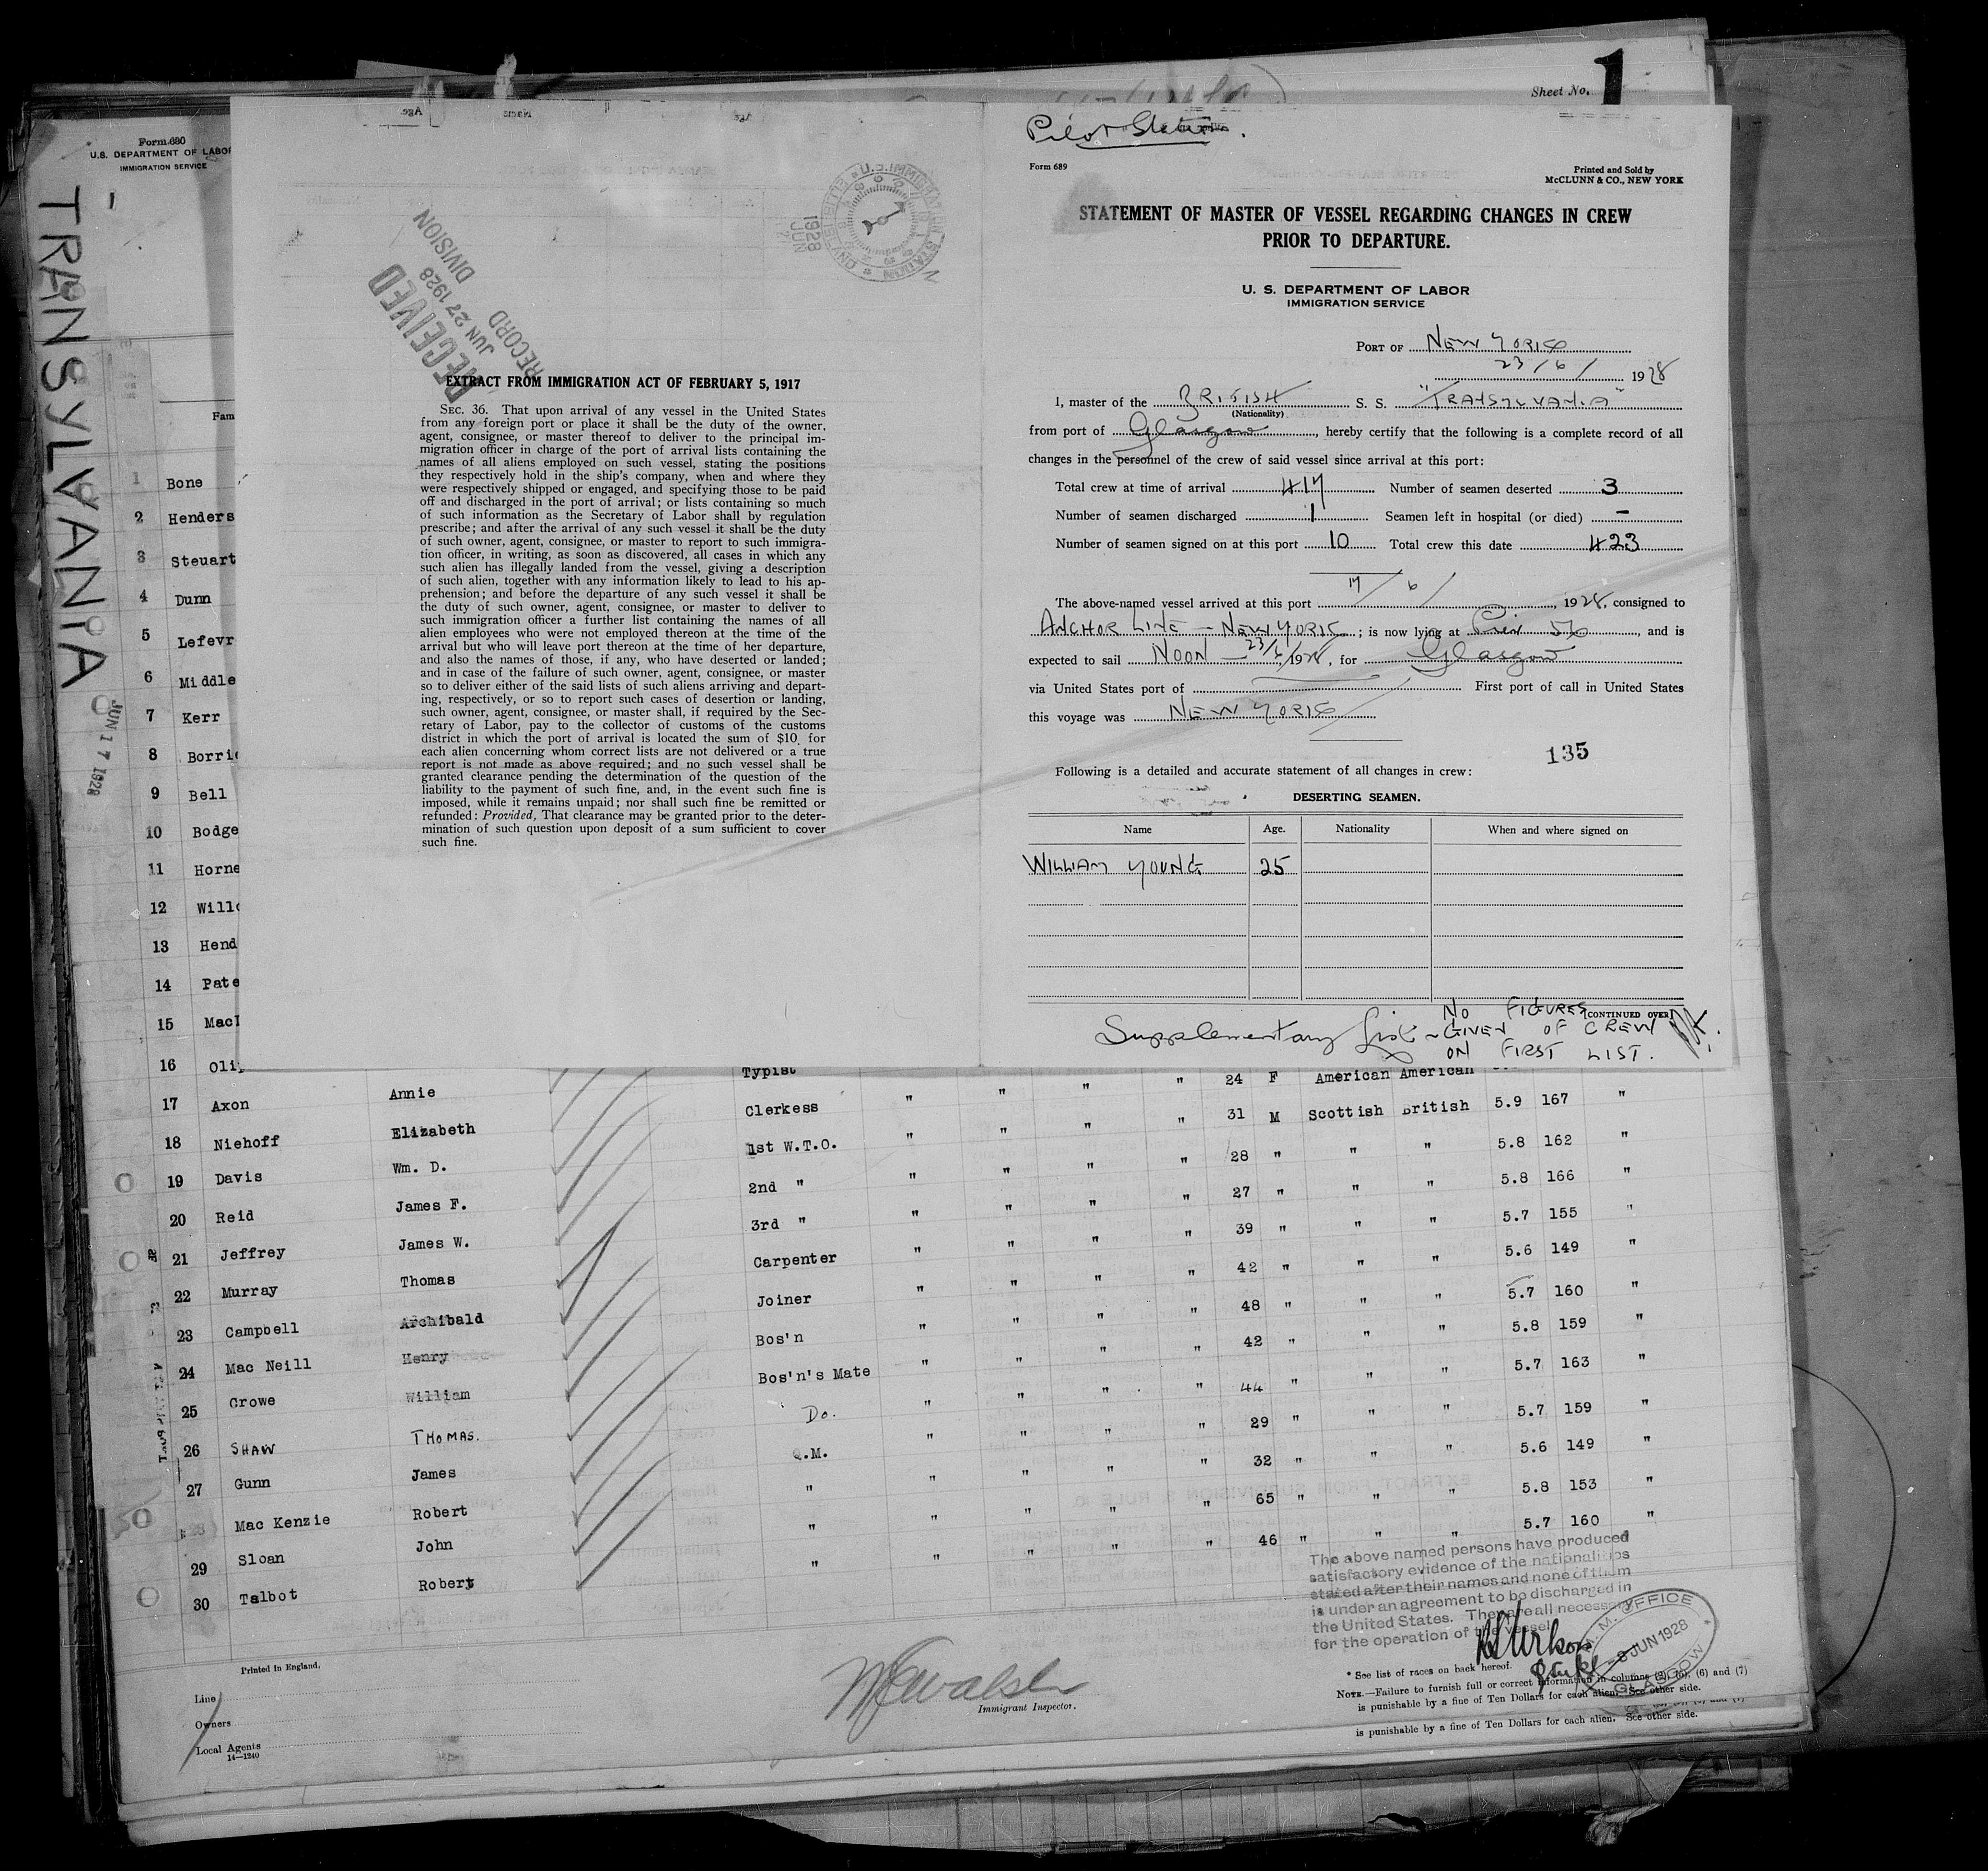 Sheet No. 1
Form 680
U.S. DEPARTMENT OF LABOR
IMMIGRATION SERVICE
TRANSYLVANIA
JUN 17 1928
Fam
1 Bone
2 Henders
3 Steuart
4 Dunn
5 Lefevr
6 Middle
7 Kerr
8 Borric
9 Bell
10 Bodge
11 Horne
12 Willo
13 Hend
14 Pate
15 Mac
16 Oli
RECEIVED
JUN 27 1928
RECORD
DIVISION
U.S. IMMIGRATION STATION
1928
JUN
EXTRACT FROM IMMIGRATION ACT OF FEBRUARY 5, 1917
SEC. 36. That upon arrival of any vessel in the United States
from any foreign port or place it shall be the duty of the owner,
agent, consignee, or master thereof to deliver to the principal im-
migration officer in charge of the port of arrival lists containing the
names of all aliens employed on such vessel, stating the positions
they respectively hold in the ship's company, when and where they
were respectively shipped or engaged, and specifying those to be paid
off and discharged in the port of arrival; or lists containing so much
of such information as the Secretary of Labor shall by regulation
prescribe; and after the arrival of any such vessel it shall be the duty
of such owner, agent, consignee, or master to report to such immigra-
tion officer, in writing, as soon as discovered, all cases in which any
such alien has illegally landed from the vessel, giving a description
of such alien, together with any information likely to lead to his ap-
prehension; and before the departure of any such vessel it shall be
the duty of such owner, agent, consignee, or master to deliver to
such immigration officer a further list containing the names of all
alien employees who were not employed thereon at the time of the
arrival but who will leave port thereon at the time of her departure,
and also the names of those, if any, who have deserted or landed;
and in case of the failure of such owner, agent, consignee, or master
so to deliver either of the said lists of such aliens arriving and depart-
ing, respectively, or so to report such cases of desertion or landing,
such owner, agent, consignee, or master shall, if required by the Sec-
retary of Labor, pay to the collector of customs of the customs
district in which the port of arrival is located the sum of $10 for
each alien concerning whom correct lists are not delivered or a true
report is not made as above required; and no such vessel shall be
granted clearance pending the determination of the question of the
liability to the payment of such fine, and, in the event such fine is
imposed, while it remains unpaid; nor shall such fine be remitted or
refunded: Provided, That clearance may be granted prior to the deter-
mination of such question upon deposit of a sum sufficient to cover
such fine.
Pilot Station.
Form 689
Printed and Sold by
McCLUNN & CO., NEW YORK
STATEMENT OF MASTER OF VESSEL REGARDING CHANGES IN CREW
PRIOR TO DEPARTURE.
U. S. DEPARTMENT OF LABOR
IMMIGRATION SERVICE
PORT OF NEW YORK
23/6/ 1928
I, master of the BRITISH S. S. "TRANSYLVANIA"
(Nationality)
from port of Glasgow, hereby certify that the following is a complete record of all
changes in the personnel of the crew of said vessel since arrival at this port:
Total crew at time of arrival 417 Number of seamen deserted 3
Number of seamen discharged 1 Seamen left in hospital (or died) -
Number of seamen signed on at this port 10 Total crew this date 423
The above-named vessel arrived at this port 17/6/, 1928, consigned to
ANCHOR LINE - NEW YORK; is now lying at Pier 56, and is
expected to sail NOON - 23/6/1928, for Glasgow
via United States port of First port of call in United States
this voyage was NEW YORK
135
Following is a detailed and accurate statement of all changes in crew:
DESERTING SEAMEN.
Name Age. Nationality When and where signed on
WILLIAM YOUNG 25
(CONTINUED OVER)
Supplementary list - NO FIGURES
GIVEN OF CREW
ON FIRST LIST.
Typist
17 Axon Annie Clerkess " " " " 24 F American American
18 Niehoff Elizabeth 1st W.T.O. " " " " 31 M Scottish British 5.9 167 "
19 Davis Wm. D. 2nd " " " " " 28 " " " 5.8 162 "
20 Reid James F. 3rd " " " " " 27 " " " 5.8 166 "
21 Jeffrey James W. Carpenter " " " " 39 " " " 5.7 155 "
22 Murray Thomas Joiner " " " " 42 " " " 5.6 149 "
23 Campbell Archibald Bos'n " " " " 48 " " " 5.7 160 "
24 Mac Neill Henry Bos'n's Mate " " " " 42 " " " 5.8 159 "
25 Crowe William Do. " " " " 44 " " " 5.7 163 "
26 SHAW THOMAS. Q.M. " " " " 29 " " " 5.7 159 "
27 Gunn James " " " " " 32 " " " 5.6 149 "
28 Mac Kenzie Robert " " " " " 65 " " " 5.8 153 "
29 Sloan John " " " " " 46 " " " 5.7 160 "
30 Talbot Robert
The above named persons have produced
satisfactory evidence of the nationalities
stated after their names and none of them
is under an agreement to be discharged in
the United States. They are all necessary
for the operation of the vessel
M. M. OFFICE
-8 JUN 1928
GLASGOW
Printed in England.
Line
Owners
Local Agents
14—1240
Immigrant Inspector.
* See list of races on back hereof.
NOTE.—Failure to furnish full or correct information in columns (2), (5), (6) and (7)
is punishable by a fine of Ten Dollars for each alien. See other side.
is punishable by a fine of Ten Dollars for each alien. See other side.